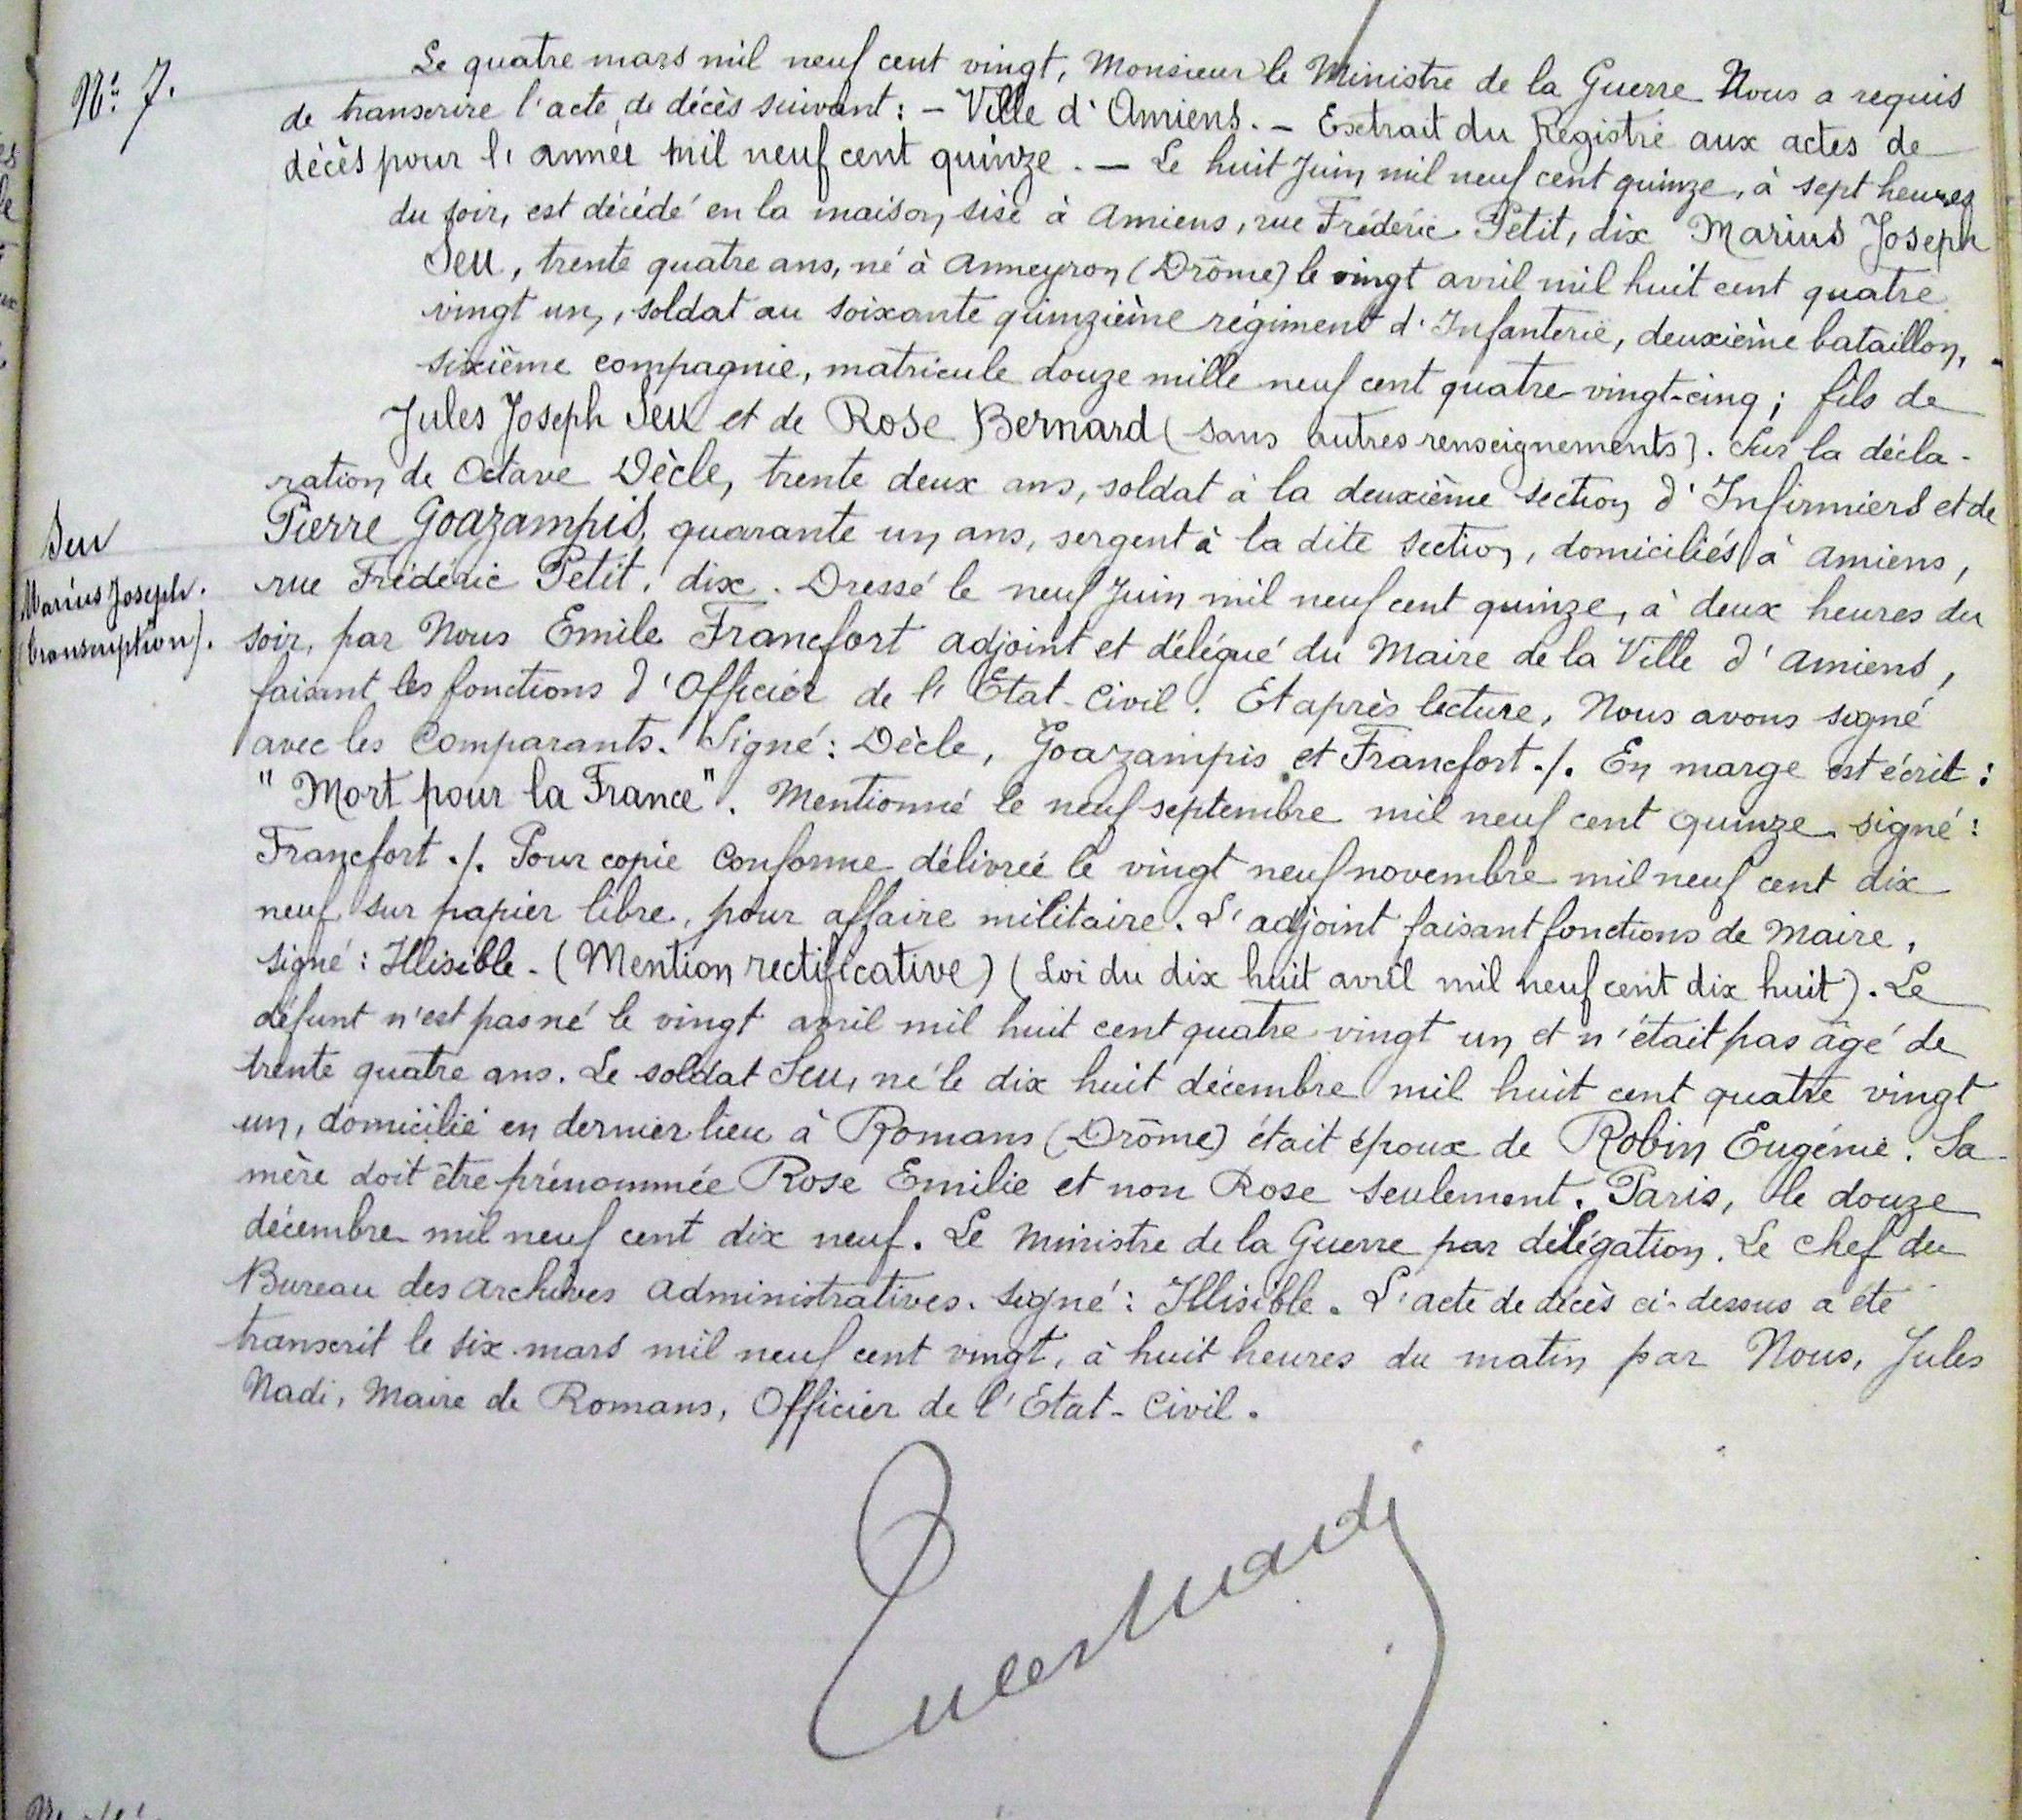 N° 7.
Le quatre mars mil neuf cent vingt, Monsieur le Ministre de la Guerre Nous a requis
de transcrire l'acte de décès suivant : - Ville d'Amiens. - Extrait du Registre aux actes de
décès pour l'année mil neuf cent quinze. - Le huit Juin mil neuf cent quinze, à sept heures
du soir, est décédé en la maison, sise à Amiens, rue Frédéric Petit, dix Marius Joseph
Seu, trente quatre ans, né à Anneyron (Drôme) le vingt avril mil huit cent quatre
vingt un, soldat au soixante quinzième régiment d'Infanterie, deuxième bataillon,
sixième compagnie, matricule douze mille neuf cent quatre-vingt-cinq ; fils de
Jules Joseph Seu et de Rose Bernard (sans autres renseignements). Sur la décla-
ration de Octave Dècle, trente deux ans, soldat à la deuxième section d'Infirmiers et de
Pierre Goazampis, quarante un ans, sergent à la dite section, domiciliés à Amiens,
rue Frédéric Petit, dix. Dressé le neuf Juin mil neuf cent quinze, à deux heures du
soir, par Nous Emile Francfort adjoint et délégué du Maire de la Ville d'Amiens,
faisant les fonctions d'Officier de l'Etat-Civil. Et après lecture, Nous avons signé
avec les Comparants. Signé : Dècle, Goazampis et Francfort ./. En marge est écrit :
"Mort pour la France". Mentionné le neuf septembre mil neuf cent quinze signé :
Francfort ./. Pour copie Conforme délivrée le vingt neuf novembre mil neuf cent dix
neuf sur papier libre, pour affaire militaire. L'adjoint faisant fonctions de Maire,
signé : Illisible. (Mention rectificative) (Loi du dix huit avril mil neuf cent dix huit). Le
défunt n'est pas né le vingt avril mil huit cent quatre vingt un et n'était pas âgé de
trente quatre ans. Le soldat Seu, né le dix huit décembre mil huit cent quatre vingt
un, domicilié en dernier lieu à Romans (Drôme) était époux de Robin Eugénie. Sa
mère doit être prénommée Rose Emilie et non Rose seulement. Paris, le douze
décembre mil neuf cent dix neuf. Le Ministre de la Guerre par délégation. Le Chef du
Bureau des Archives Administratives. signé : Illisible. L'acte de décès ci-dessus a été
transcrit le six mars mil neuf cent vingt, à huit heures du matin par Nous, Jules
Nadi, Maire de Romans, Officier de l'Etat-Civil.
Seu
Marius Joseph.
(transcription).
Jules Nadi